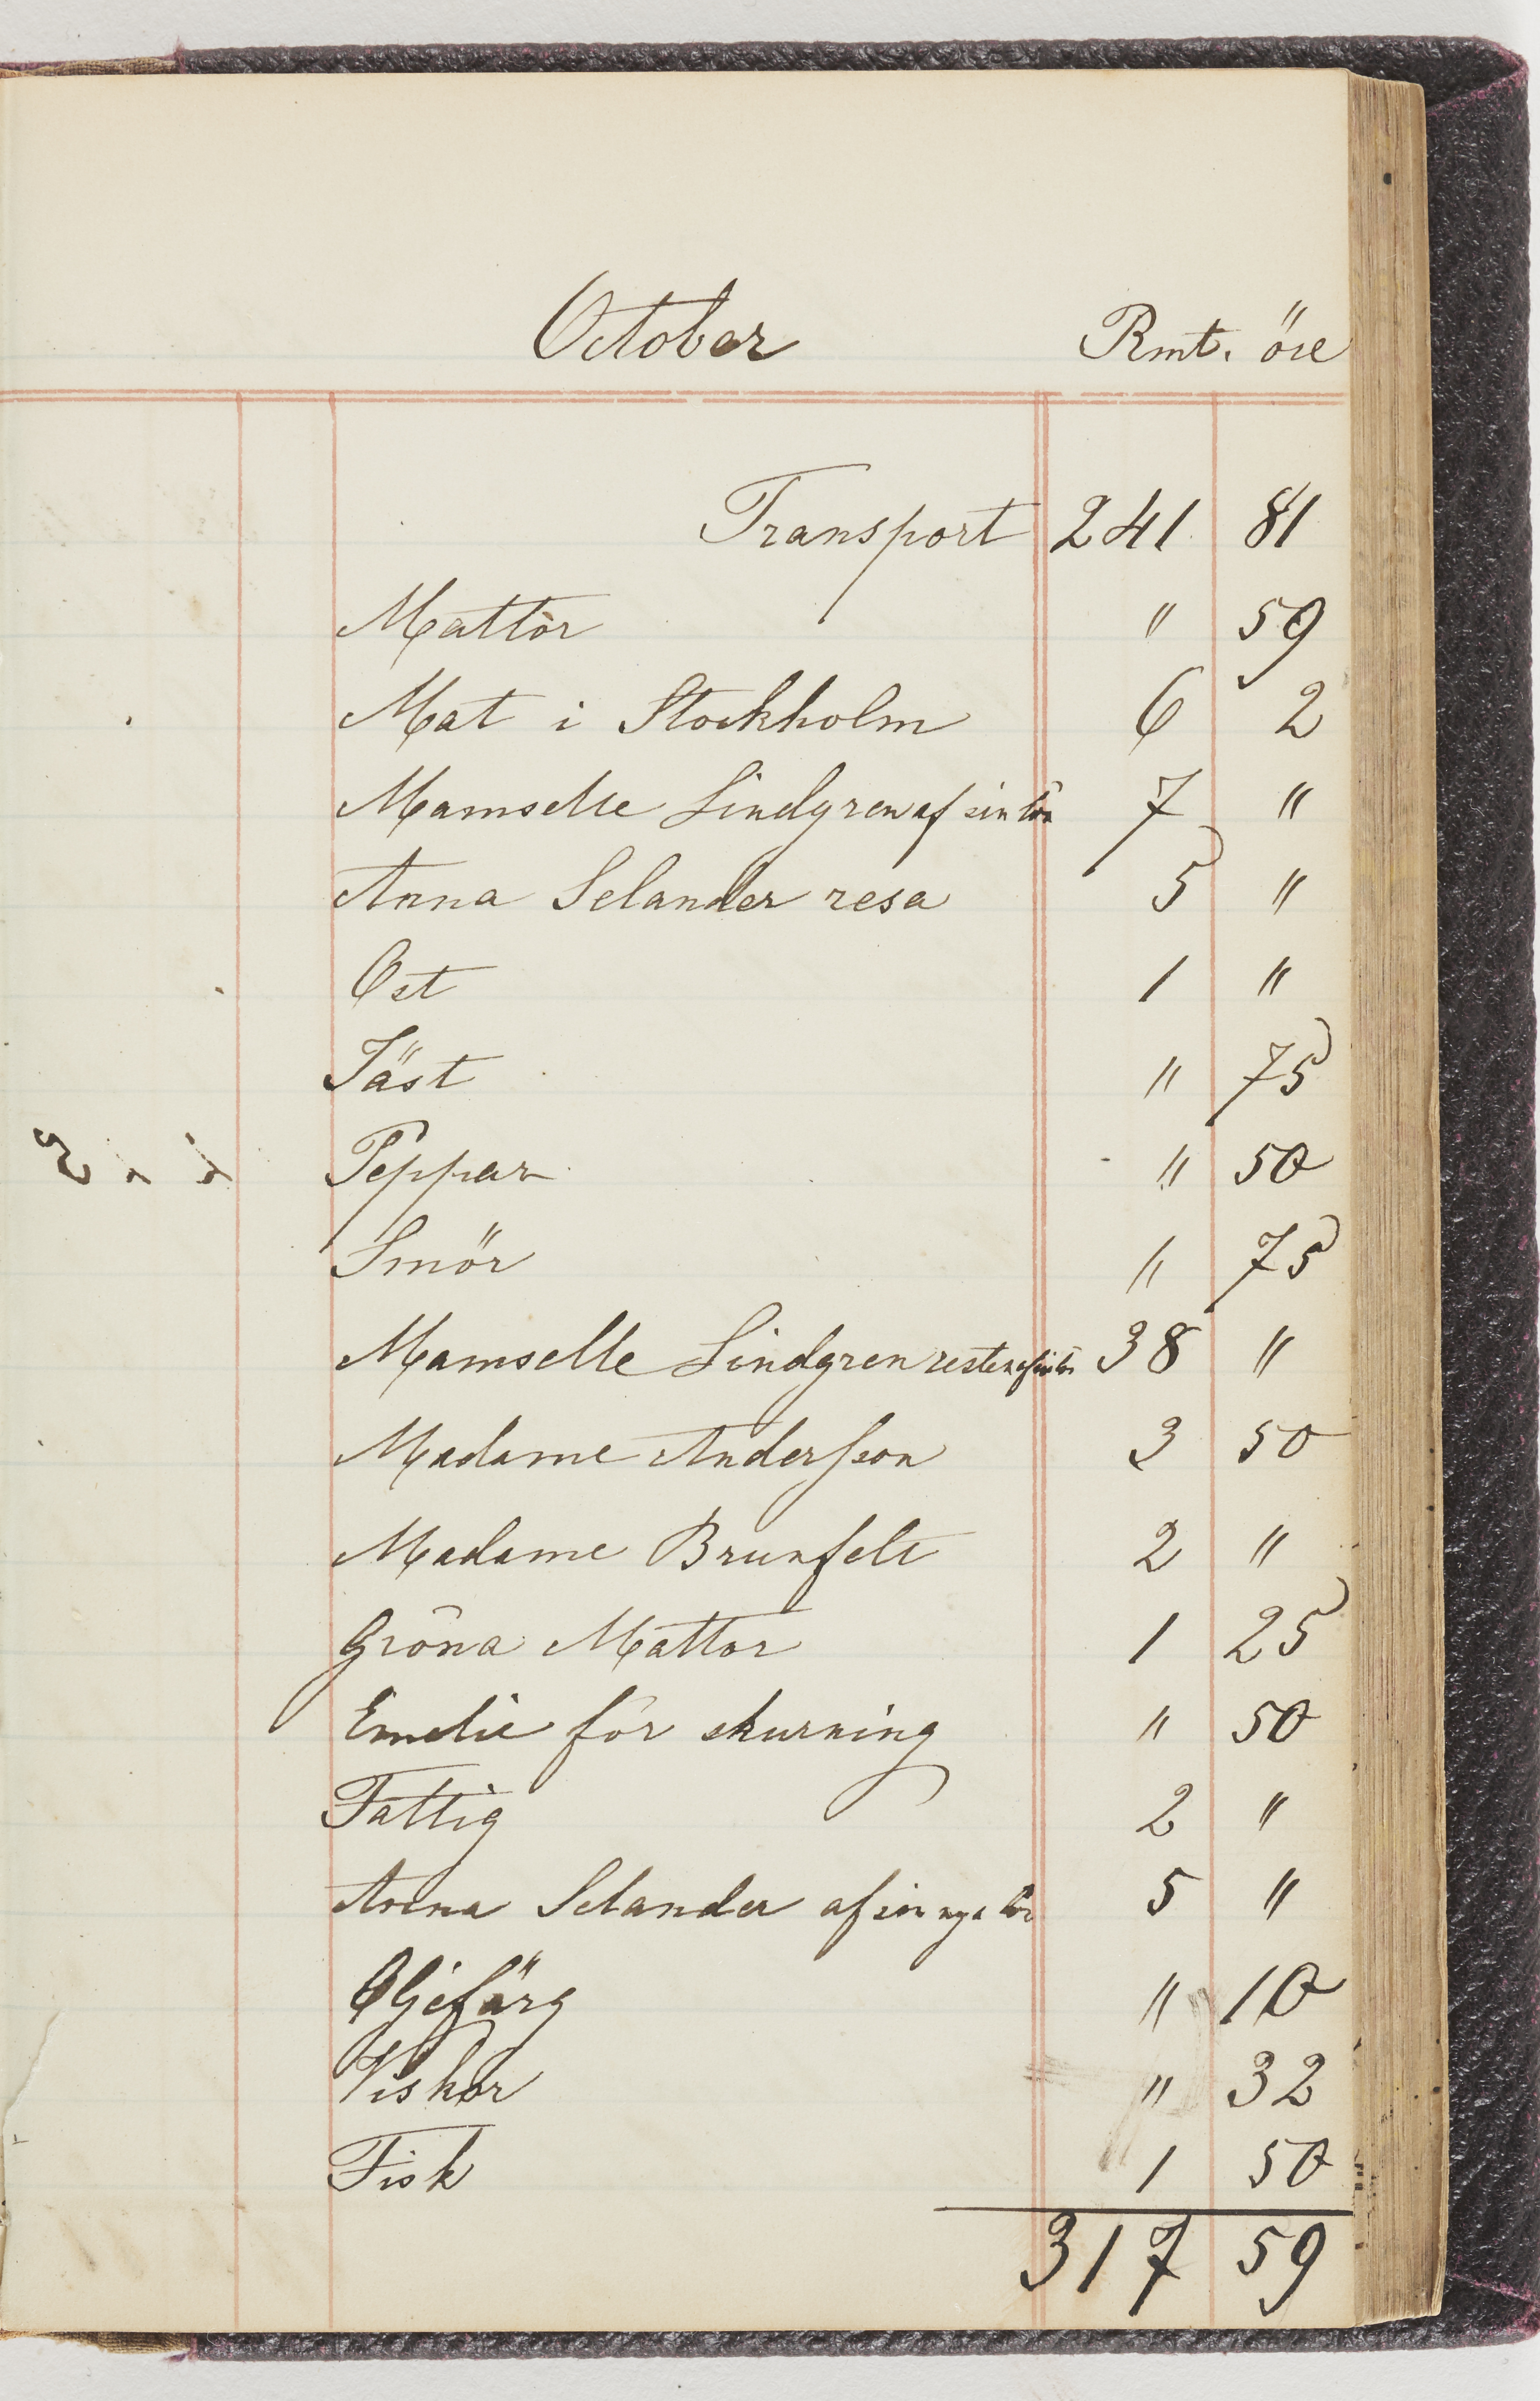 October Rmt. öre
Transport 241 81
Mattor " 59
Mat i Stockholm 6 2
Mamselle Lindgren af sin lön 7 "
Anna Selander resa 5 "
Ost 1 "
Jäst " 75
Peppar " 50
Smör " 75
Mamselle Lindgren resten af sin lön 38 "
Madame Andersson 3 50
Madame Brunfelt 2 "
Gröna Mattor 1 25
Emelie för skurning " 50
Fattig 2 "
Anna Selander af sin nya lön 5 "
Oljefärg " 10
Viskor " 32
Fisk 1 50
317 59